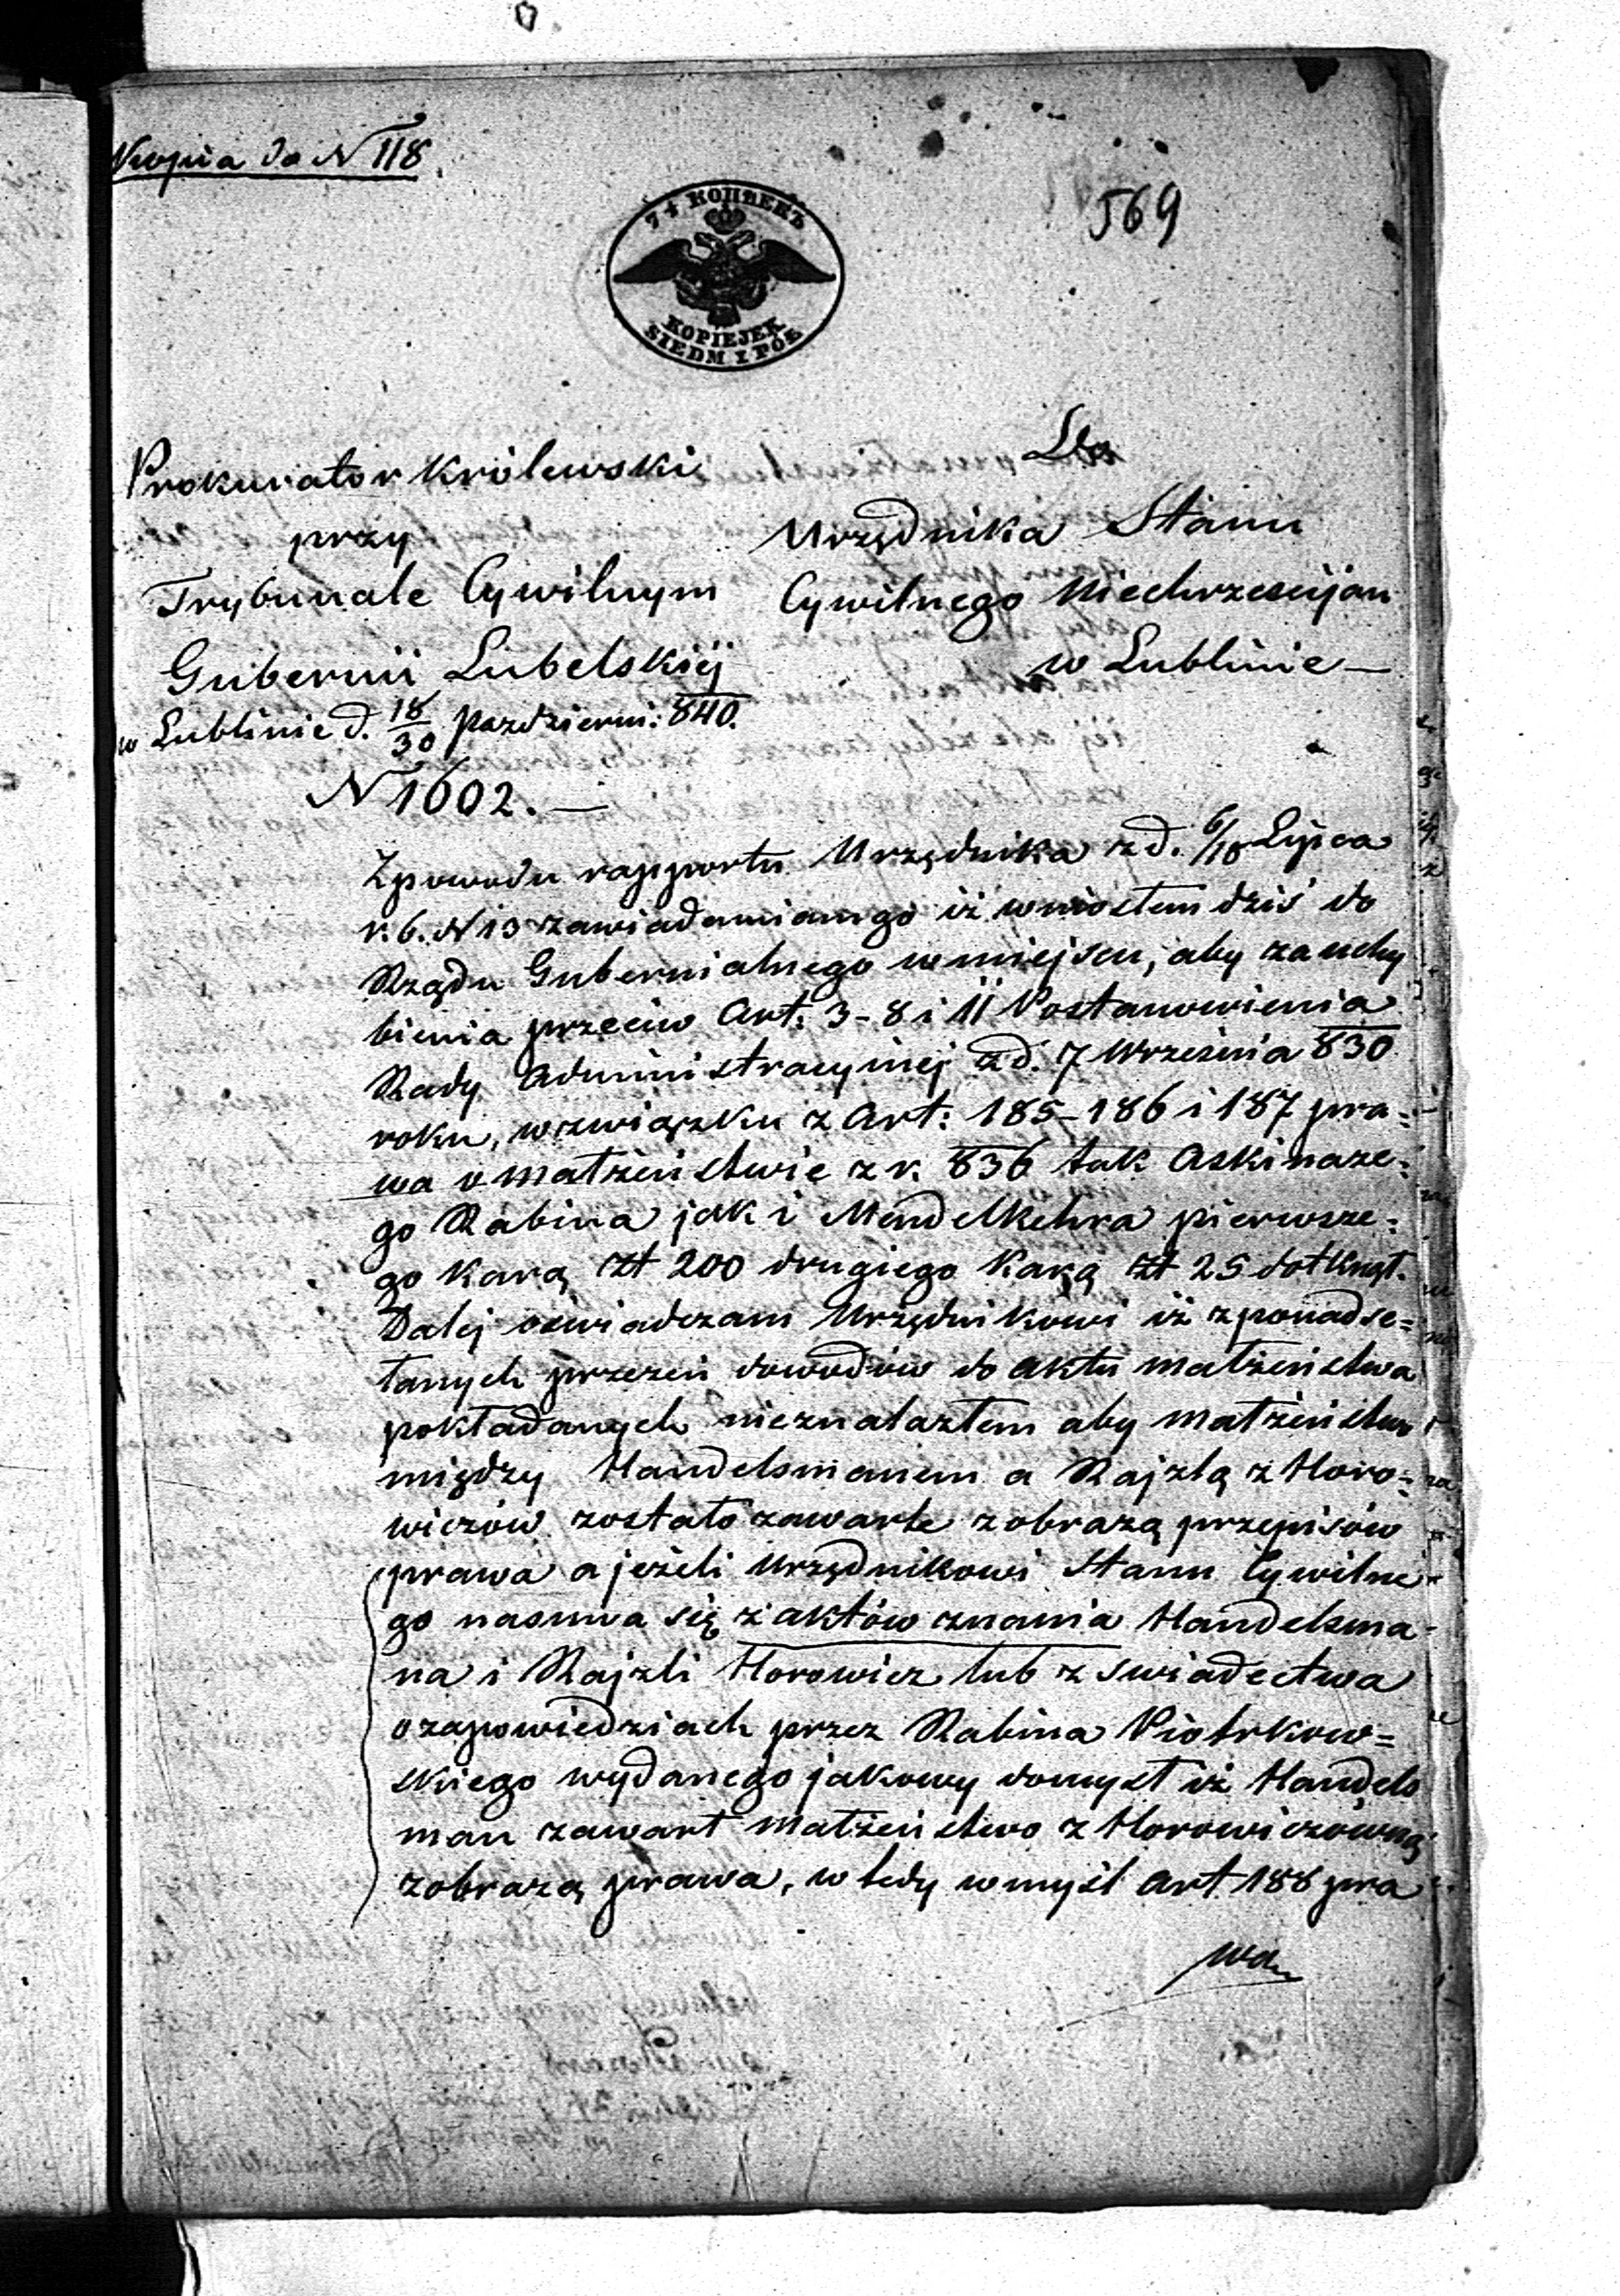 Kopia do N 118.
569
7½ КОПѢЕКЪ
KOPIEJEK
SIEDM I PÓŁ
Prokurator Królewski
przy
Trybunale Cywilnym
Gubernii Lubelskiéj
w Lublinie d. 18/30 Pazdzierni: 840.
N 1602. —
Do
Urzędnika Stanu
Cywilnego Niechrzescijan
w Lublinie —
Zpowodu rapportu Urzędnika z d. 6/18 Lipca
r. b. N 13 zawiadamiam go iż wniosłem dziś do
Rządu Gubernialnego w miejscu, aby za uchy
bienia przeciw Art: 3-8 i 11 Postanowienia
Rady Administracyjnej z d. 7 Września 830
roku, w związku z Art: 185-186 i 187 pra=
wa o małżeństwie z r. 836 tak Askinaze=
go Rabina jak i Mendelkehra pierwsze=
go karą Zł 200 drugiego karą Zł 25 dotknął.
Dalej oswiadczam Urzędnikowi iż z ponadse=
łanych przezeń dowodów do aktu małżeństwa
pokładanych nieznalazłem aby małżeństwo
między Handelsmanem a Rajzlą z Horo=
wiczów zostało zawarte z obrazą przepisów
prawa a jeżeli Urzędnikowi Stanu Cywilne=
go nasuwa się z aktów znania Handelsma=
na i Rajzli Horowicz lub z swiadectwa
o zapowiedziach przez Rabina Piotrkow=
skiego wydanego jakowy domysł iż Handels
man zawarł małżeństwo z Horowiczówną
z obrazą prawa, wtedy w myśl Art 188 pra
wa